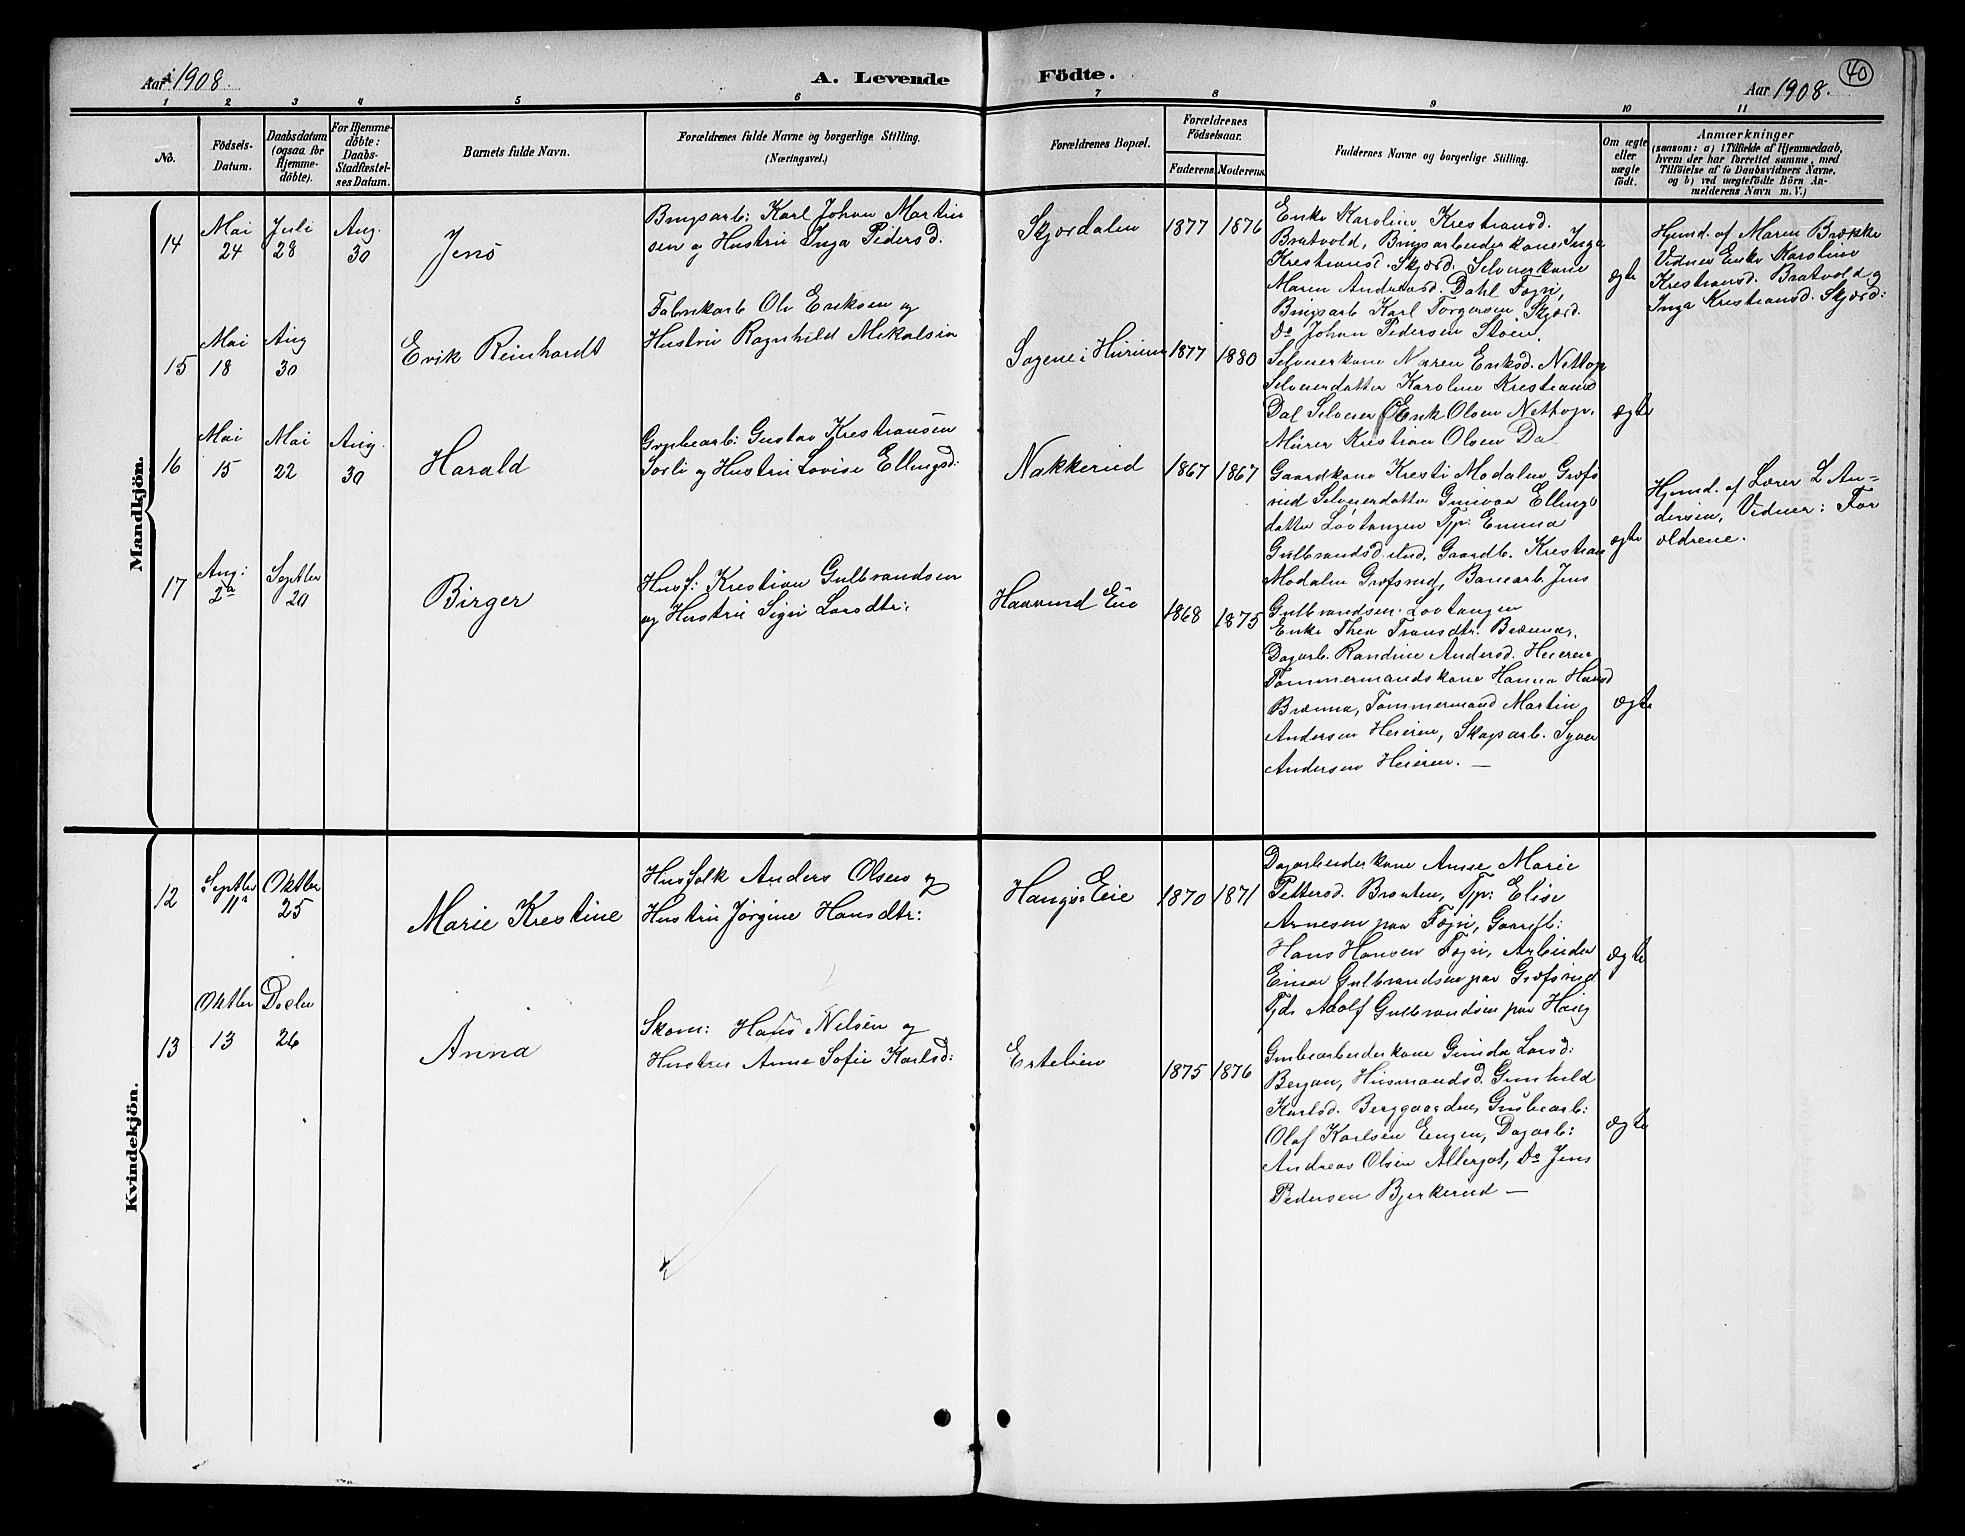 Aar 1908.
A. Levende
Födte.
Aar 1908.
40
1 2 3 4 5 6 7 8 9 10 11
No.
Födsels-
Datum.
Daabsdatum
(ogsaa for
Hjemme-
döbte).
For Hjemme-
döbte:
Daabs-
Stadfæstel-
ses Datum.
Barnets fulde Navn.
Forældrenes fulde Navne og borgerlige Stilling.
(Næringsvei.)
Forældrenes Bopæl.
Forældrenes
Födselsaar.
Faderens. Moderens.
Faddernes Navne og borgerlige Stilling.
Om ægte
eller
uægte
födt.
Anmærkninger
(saasom: a) i Tilfælde af Hjemmedaab,
hvem der har forrettet samme, med
Tilföielse af to Daabsvidners Navne,
og b) ved uægtefödte Börn An-
melderens Navn m. V.)
Mandkjön.
14
Mai
24
Juli
28
Aug.
30
Jens
Brugsarb: Karl Johan Martin
sen og Hustru Inga Pedersd.
Skjørdalen
1877
1876
Enke Karoline Krestiansd.
Bratvold, Brugsarbeiderkone Inga
Krestiansd. Skjørd. Selveierkone
Maren Andreasd. Dahl Fagri,
Brugsarb Karl Torgersen Skjørd.
Do Johan Pedersen Stoien.
ægte
Hjemd. af Maren Brække
Vidner Enke Karoline
Krestiansd. Bratvold og
Inga Krestiansd. Skjørd:
15
Mai
18
Aug
30
Erik Reinhardt
Fabrikarb Ole Eriksen og
Hustru Ragnhild Mikalsen
Sagene i Hurum
1877
1880
Selveierkone Maren Eriksd. Nettop
Selveierdatter Karoline Krestiansd
Dal Selveier Erik Olsen Nettop,
Murer Kristian Olsen Dal
ægte
16
Mai
15
Mai
22
Aug.
30
Harald
Grubearb: Gustav Krestiansen
Sorli og Hustru Lovise Ellingsd:
Nakkerud
1867
1867
Gaardkone Kresti Modalen Grøfs
rud Selveierdatter Gunvor Ellings
datter Løvtangen Tjp: Emma
Gulbrandsd. Gaardb. Krestian
Modalen Grøfsrud, Banearb. Jens
Gulbrandsen Løvtangen
ægte
Hjemd. af Lærer L An-
dersen, Vidner: For
ældrene.
17
Aug:
2
Septber
20
Birger
Husf: Krestian Gulbrandsen
og Hustru Sigri Larsdtr:
Haavrud Eie
1868
1875
Enke Thea Fransdtr. Brænna,
Dagarb. Randine Andersd. Heieren
Tømmermandskone Hanna Hansd
Brænna, Tømmermand Martin
Andersen Heieren, Skogsarb. Syver
Andersen Heieren. —
ægte
Kvindekjön.
12
Septber
11
Oktber
25
Marie Krestine
Husfolk Anders Olsen og
Hustru Jørgine Hansdtr:
Haugs: Eie
1870
1871
Dagarbeiderkone Anne Marie
Pettersd. Braaten, Tjp: Elise
Arnesen paa Fagri, Gaardb:
Hans Hansen Fagri, Arbeider
Einar Gulbrandsen paa Grøfsrud
Tjdr Adolf Gulbrandsen paa Haug
ægte
13
Oktber
13
Decbr
26
Anna
Skom: Hans Nilsen og
Hustru Anne Sofie Karlsd:
Ertelien
1875
1876
Grubearbeiderkone Gunda Larsd:
Bergan, Husmandsd. Gunhild
Karlsd. Berggaarden, Grubearb:
Olaf Karlsen Engen, Dagarb:
Andreas Olsen Allergot, Do Jens
Pedersen Bjerkerud —
ægte